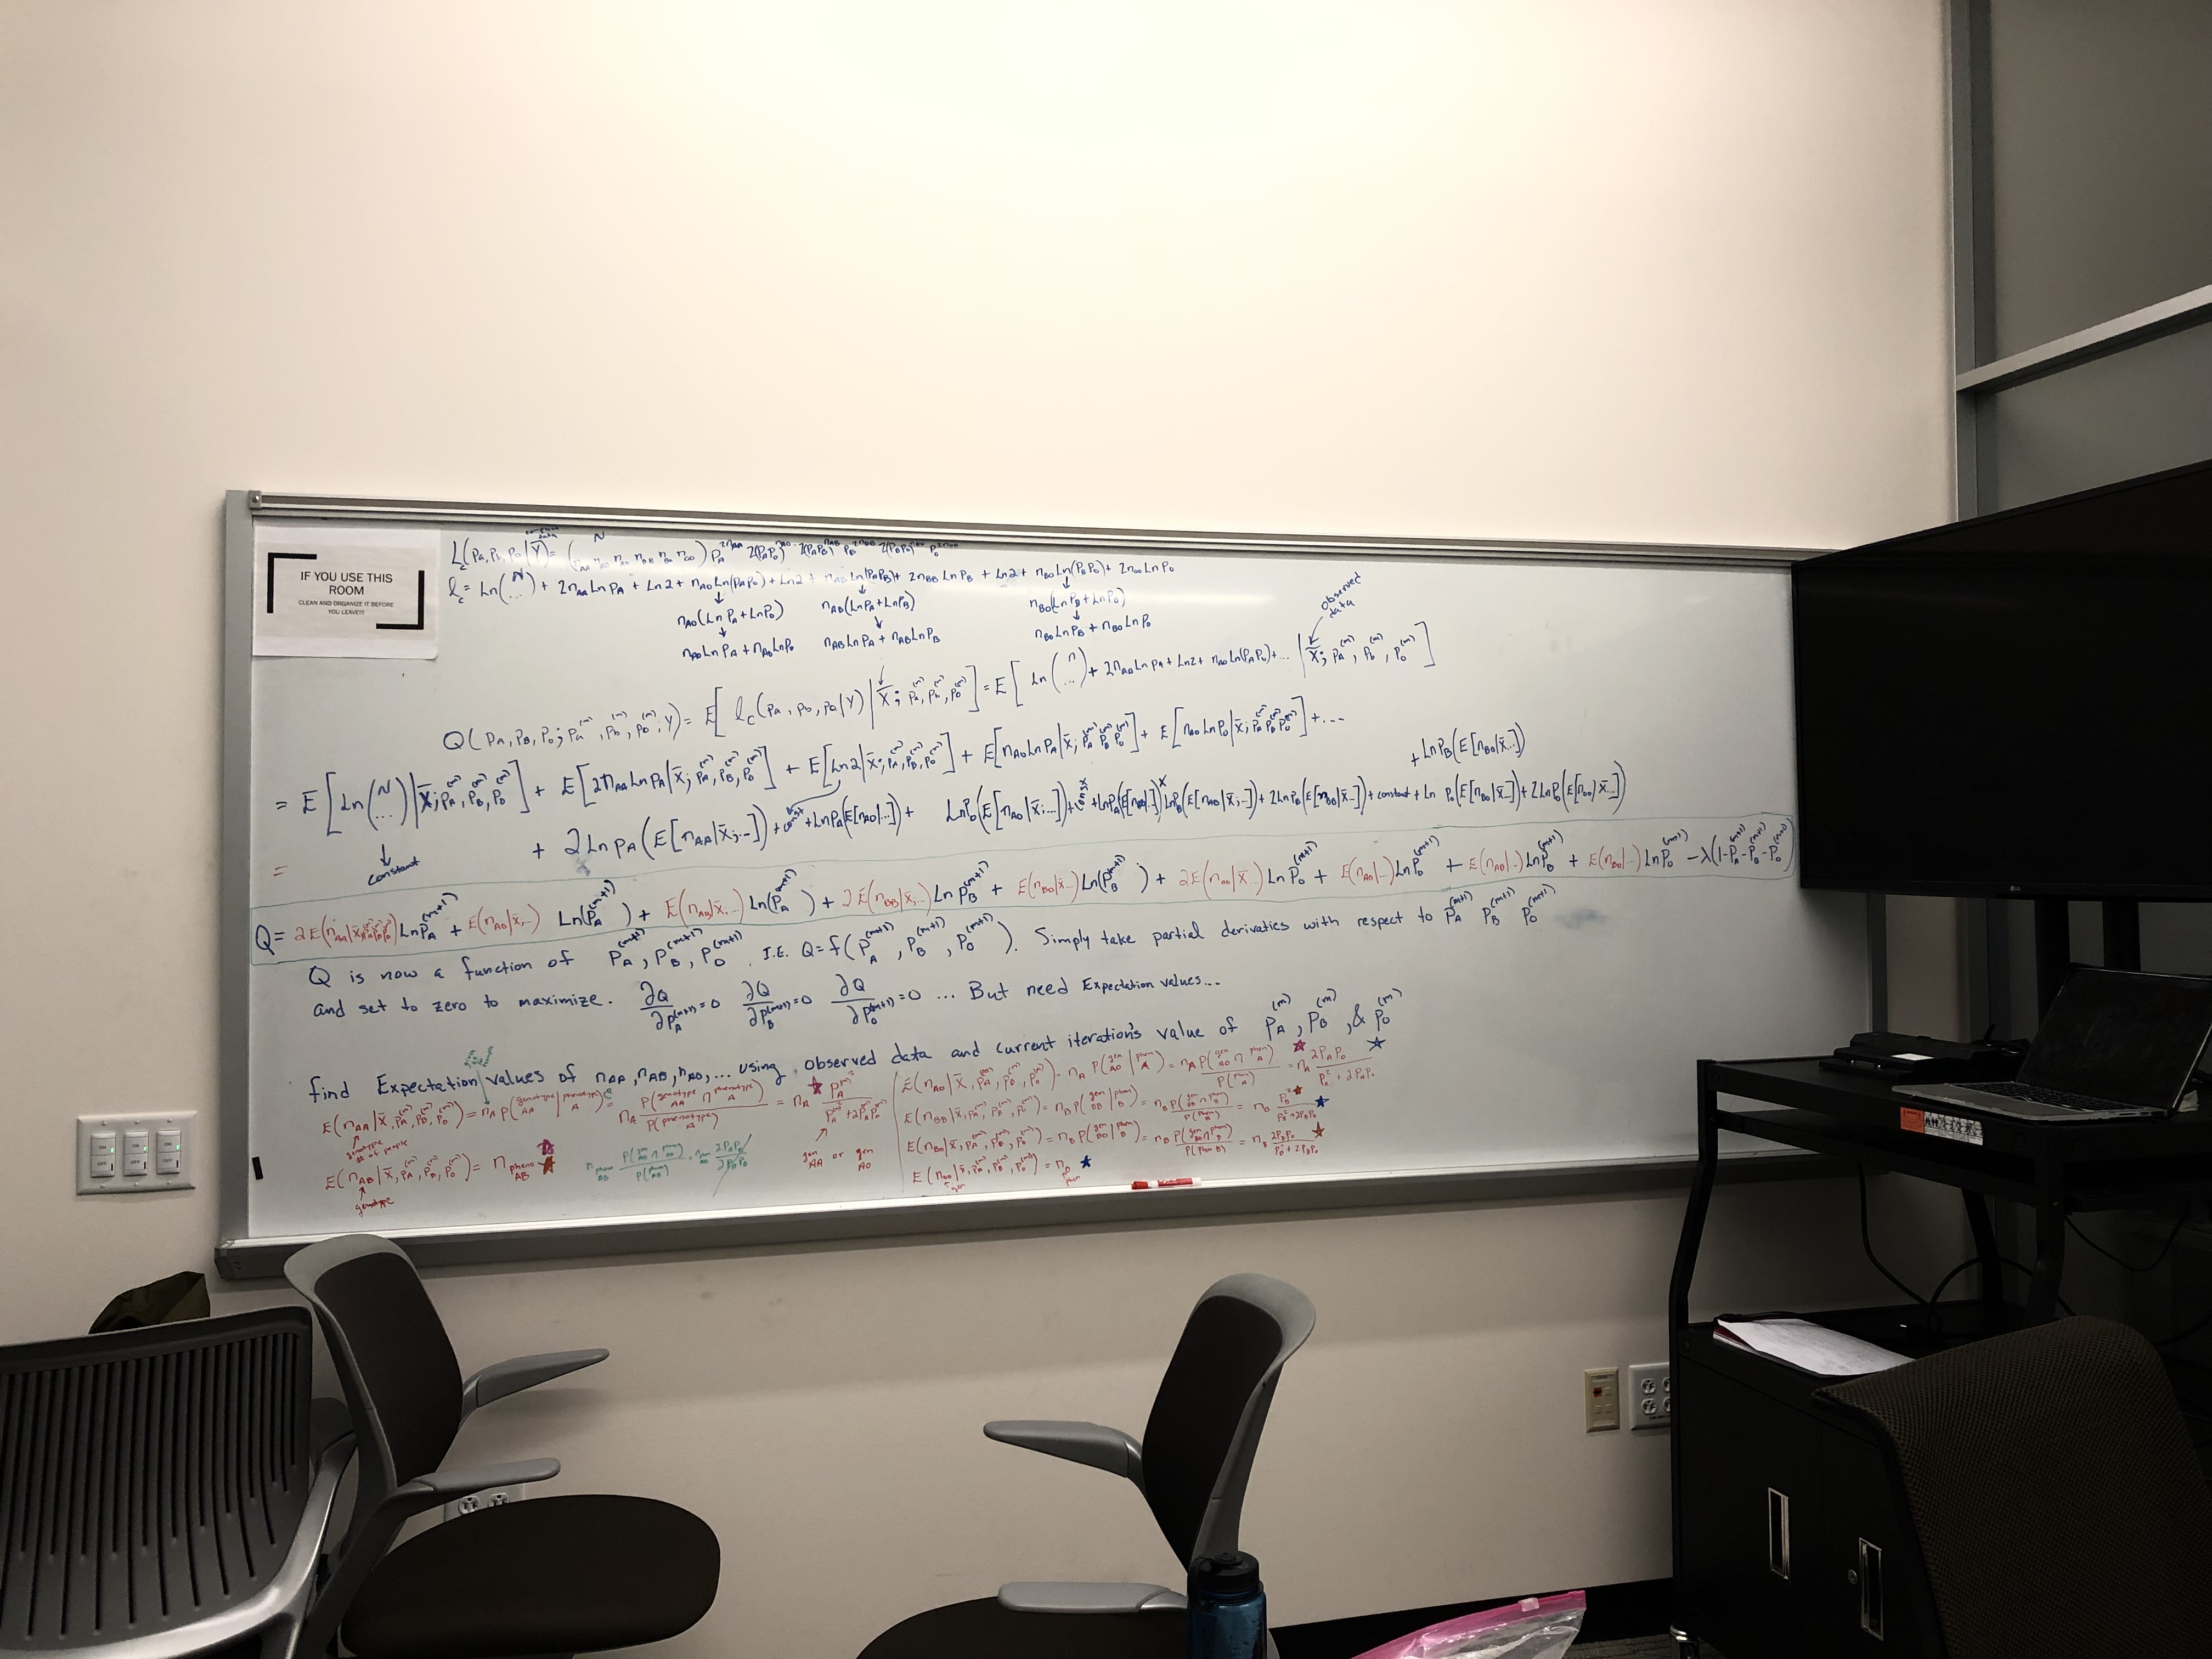 IF YOU USE THIS
ROOM
CLEAN AND ORGANIZE IT BEFORE
YOU LEAVE!!!
L_c(p_a, p_b, p_o | Y) = (N n_AA n_AO n_AB n_BB n_BO n_OO) P_A^{2n_AA} 2(P_A P_O)^{n_AO} · 2(P_A P_B)^{n_AB} P_B^{2n_BB} 2(P_B P_O)^{n_BO} P_O^{2n_OO}
l_c = Ln(N ...) + 2n_AA Ln P_A + Ln2 + n_AO Ln(P_A P_O) + Ln2 + n_AB Ln(P_A P_B) + 2n_BB Ln P_B + Ln2 + n_BO Ln(P_B P_O) + 2n_OO Ln P_O
↓ ↓ ↓
n_AO(Ln P_A + Ln P_O) n_AB(Ln P_A + Ln P_B) n_BO(Ln P_B + Ln P_O)
↓ ↓ ↓
n_AO Ln P_A + n_AO Ln P_O n_AB Ln P_A + n_AB Ln P_B n_BO Ln P_B + n_BO Ln P_O
Observed data
Q(P_A, P_B, P_O; P_a^(m), P_b^(m), P_O^(m), Y) = E[l_c(P_a, P_b, P_O | Y) | X̄; P_a^(m), P_b^(m), P_O^(m)] = E[Ln(n ...) + 2n_AA Ln P_A + Ln2 + n_AO Ln(P_A P_O) + ... | X̄; P_A^(m), P_B^(m), P_O^(m)]
= E[Ln(N ...) | X̄; P_A^(m), P_B^(m), P_O^(m)] + E[2n_AA Ln P_A | X̄; P_A^(m), P_B^(m), P_O^(m)] + E[Ln2 | X̄; P_A^(m), P_B^(m), P_O^(m)] + E[n_AO Ln P_A | X̄; P_A^(m) P_B^(m) P_O^(m)] + E[n_AO Ln P_O | X̄; P_A^(m) P_B^(m) P_O^(m)] + ...
+ Ln P_B(E[n_BO | X̄...])
= constant + 2 Ln P_A(E[n_AA | X̄; ...]) + const + Ln P_A(E[n_AO | ...]) + Ln P_O(E[n_AO | X̄; ...]) + const + Ln P_A(E[n_AB | ...]) Ln P_B(E[n_AB | X̄; ...]) + 2 Ln P_B(E[n_BB | X̄...]) + constant + Ln P_O(E[n_BO | X̄...]) + 2 Ln P_O(E[n_OO | X̄...])
Q = 2E(n_AA | X̄; P_A^(m) P_B^(m) P_O^(m)) Ln P_A^(m+1) + E(n_AO | X̄; ...) Ln(P_A^(m+1)) + E(n_AB | X̄; ...) Ln(P_A^(m+1)) + 2E(n_BB | X̄; ...) Ln P_B^(m+1) + E(n_BO | X̄...) Ln(P_B^(m+1)) + 2E(n_OO | X̄...) Ln P_O^(m+1) + E(n_AO | ...) Ln P_O^(m+1) + E(n_AB | ...) Ln P_B^(m+1) + E(n_BO | ...) Ln P_O^(m+1) - λ(1 - P_A^(m+1) - P_B^(m+1) - P_O^(m+1))
Q is now a function of P_A^(m+1), P_B^(m+1), P_O^(m+1). I.E. Q = f(P_A^(m+1), P_B^(m+1), P_O^(m+1)). Simply take partial derivaties with respect to P_A^(m+1) P_B^(m+1) P_O^(m+1)
and set to zero to maximize. ∂Q/∂P_A^(m+1) = 0 ∂Q/∂P_B^(m+1) = 0 ∂Q/∂P_O^(m+1) = 0 ... But need Expectation values...
find Expectation values of n_AA, n_AB, n_AO, ... using observed data and current iteration's value of P_A^(m), P_B^(m), & P_O^(m)
E(n_AA | X̄, P_A^(m), P_B^(m), P_O^(m)) = n_A P(genotype AA | phenotype A) = n_A P(genotype AA ∩ phenotype A) / P(phenotype A) = n_A P_A^(m)² / P_A^(m)² + 2P_A^(m) P_O^(m)
genotype
# of people
gen AA or gen AO
E(n_AB | X̄, P_A^(m), P_B^(m), P_O^(m)) = n_pheno AB
genotype
E(n_AO | X̄, P_A^(m), P_B^(m), P_O^(m)) = n_A P(gen AO | phen A) = n_A P(gen AO ∩ phen A) / P(phen A) = n_A 2P_A P_O / P_A² + 2P_A P_O
E(n_BB | X̄, P_A^(m), P_B^(m), P_O^(m)) = n_B P(gen BB | phen B) = n_B P(gen BB ∩ phen B) / P(phen B) = n_B P_B² / P_B² + 2P_B P_O
E(n_BO | X̄, P_A^(m), P_B^(m), P_O^(m)) = n_B P(gen BO | phen B) = n_B P(gen BO ∩ phen B) / P(phen B) = n_B 2P_B P_O / P_B² + 2P_B P_O
E(n_OO | X̄, P_A^(m), P_B^(m), P_O^(m)) = n_O phen
gen